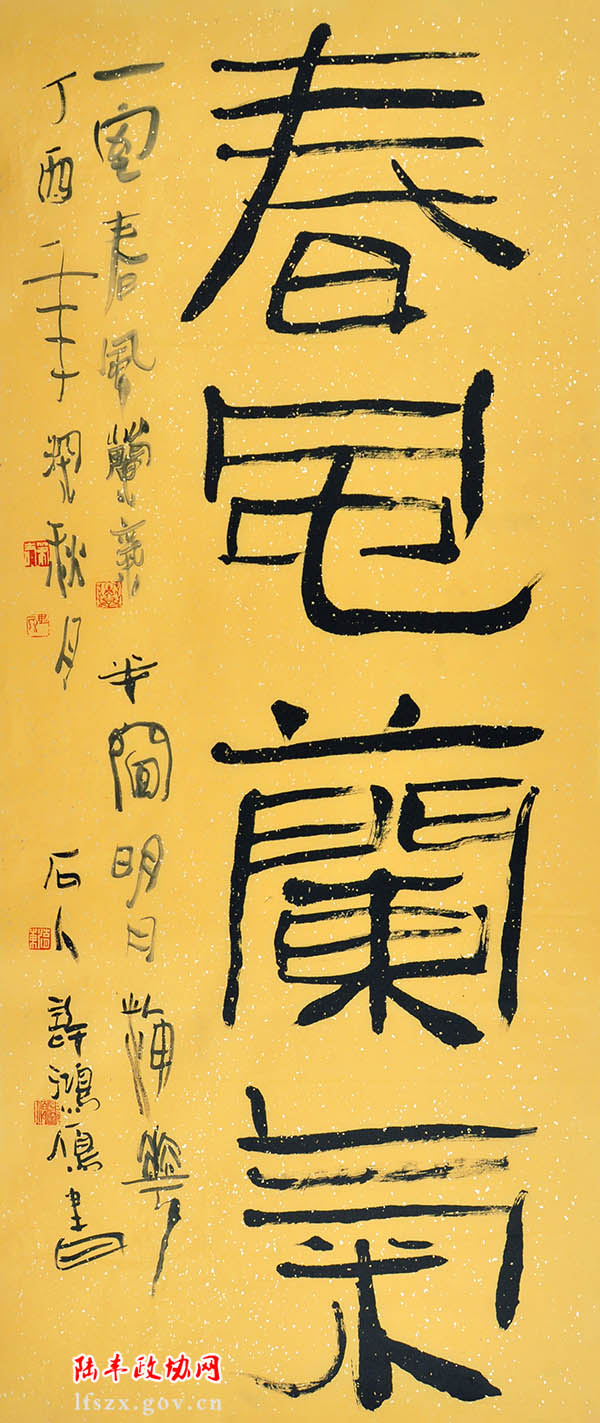 春風蘭氣
一室春風蘭氣 半窗明月梅華
丁酉年秋月 石人 許鴻雁書
陆丰政协网
lfszx.gov.cn